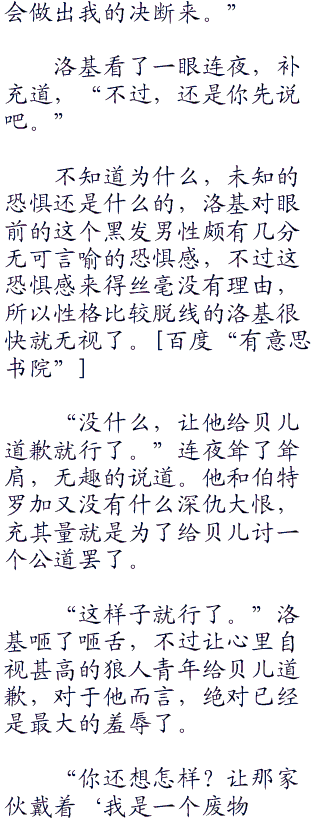 会做出我的决断来。”
洛基看了一眼连夜，补
充道，“不过，还是你先说
吧。”
不知道为什么，未知的
恐惧还是什么的，洛基对眼
前的这个黑发男性颇有几分
无可言喻的恐惧感，不过这
恐惧感来得丝毫没有理由，
所以性格比较脱线的洛基很
快就无视了。[百度“有意思
书院”]
“没什么，让他给贝儿
道歉就行了。”连夜耸了耸
肩，无趣的说道。他和伯特
罗加又没有什么深仇大恨，
充其量就是为了给贝儿讨一
个公道罢了。
“这样子就行了。”洛
基咂了咂舌，不过让心里自
视甚高的狼人青年给贝儿道
歉，对于他而言，绝对已经
是最大的羞辱了。
“你还想怎样？让那家
伙戴着‘我是一个废物